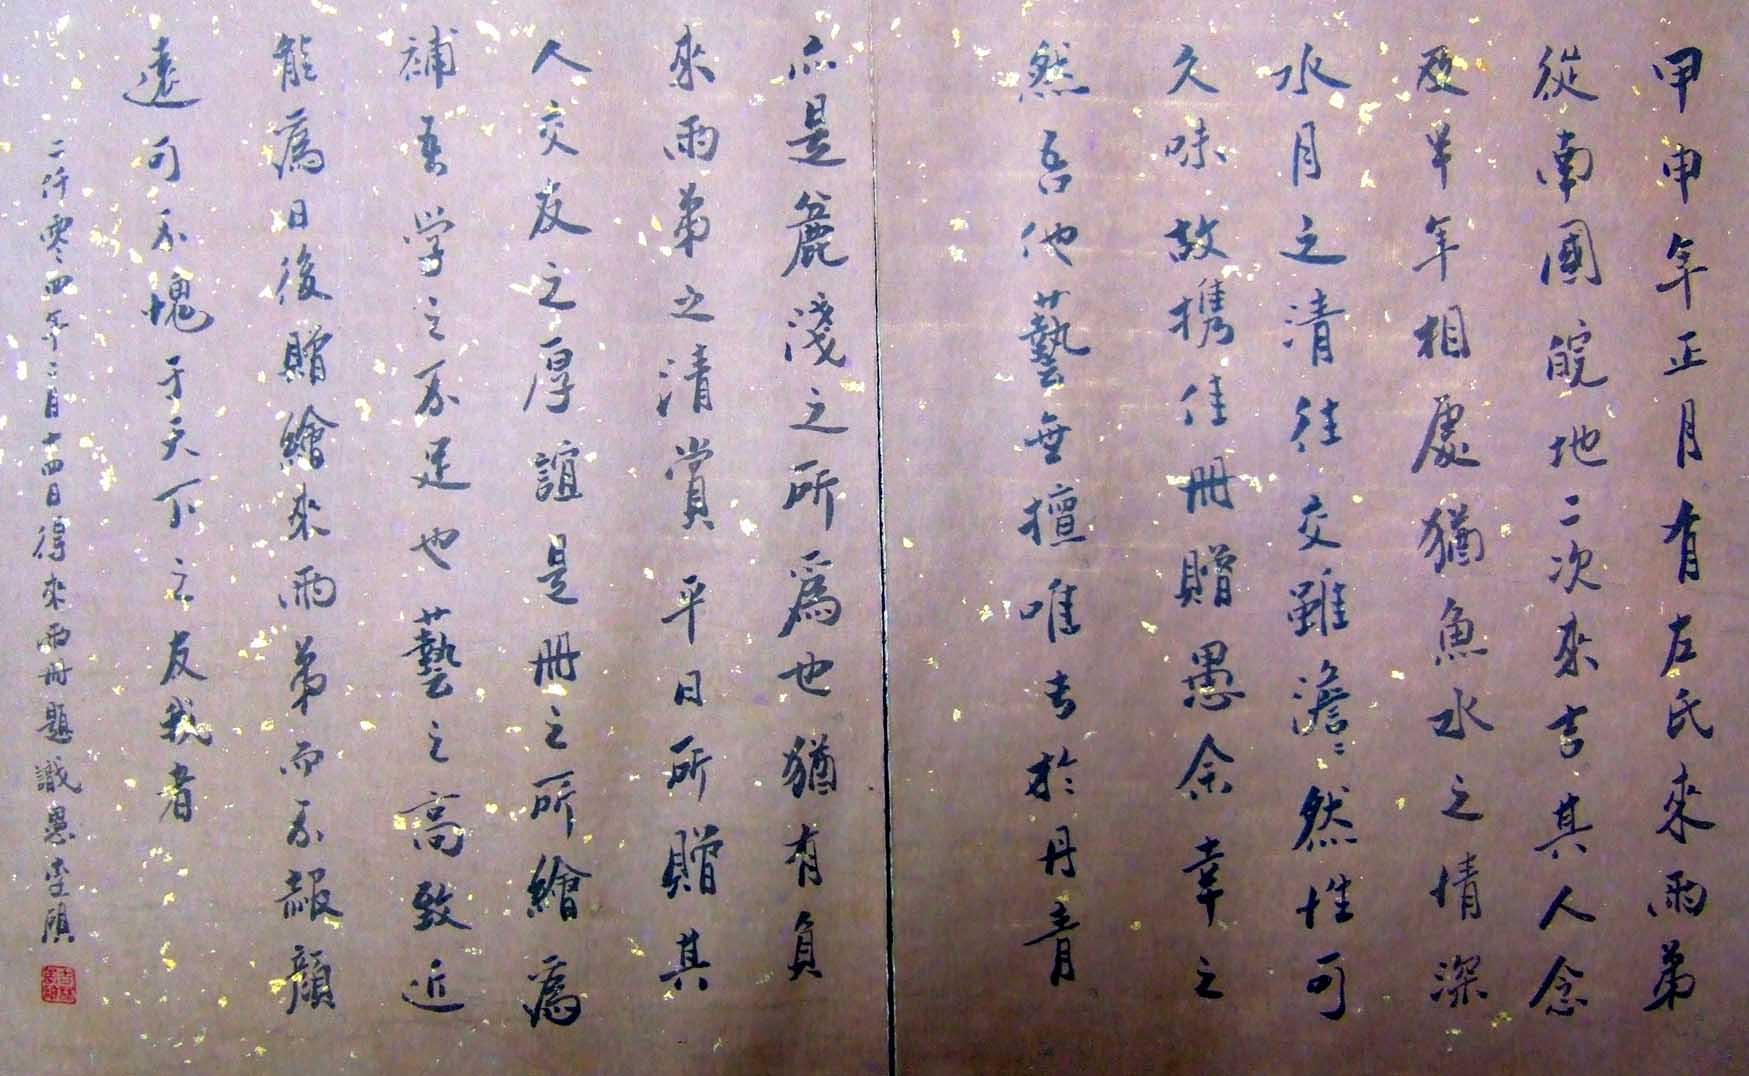 甲申年正月有左氏來雨弟
從南國皖地二次來吉其人念
及早年相處猶魚水之情深
水月之清往交雖澹澹然性可
久味故携佳冊贈愚余幸之
然吾他藝無擅唯古於丹青
亦是麄淺之所爲也猶有負
來雨弟之清賞平日所贈其
人交友之厚誼是冊之所繪爲
補吾学之不足也藝之高致近
能爲日後贈繪來雨弟而不赧顔
遠可不愧于天下之友我者
二仟零四年二月十四日得來雨冊題識愚李頎